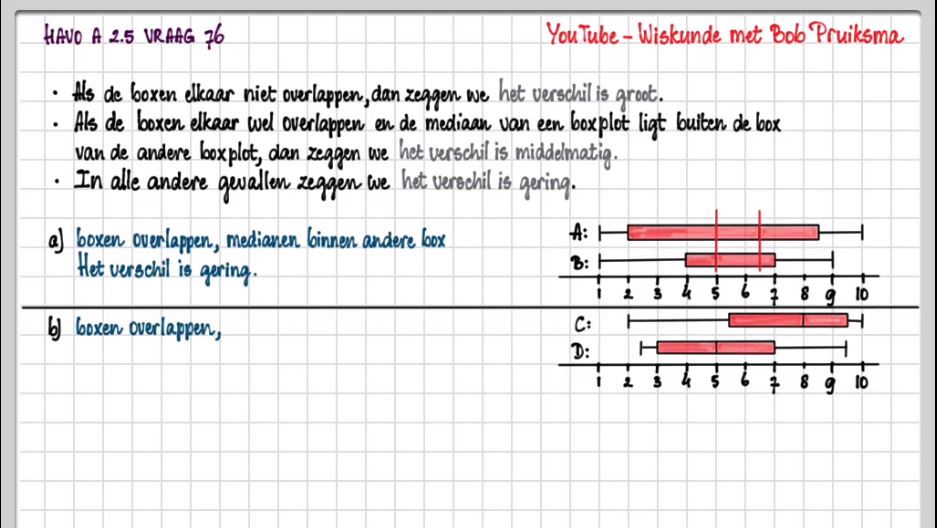 HAVO A 2.5 VRAAG 76
YouTube - Wiskunde met Bob Pruiksma
• Als de boxen elkaar niet overlappen, dan zeggen we het verschil is groot.
• Als de boxen elkaar wel overlappen en de mediaan van een boxplot ligt buiten de box
van de andere boxplot, dan zeggen we het verschil is middelmatig.
• In alle andere gevallen zeggen we het verschil is gering.
a) boxen overlappen, medianen binnen andere box
Het verschil is gering.
A:
B:
1 2 3 4 5 6 7 8 9 10
b) boxen overlappen,
C:
D:
1 2 3 4 5 6 7 8 9 10